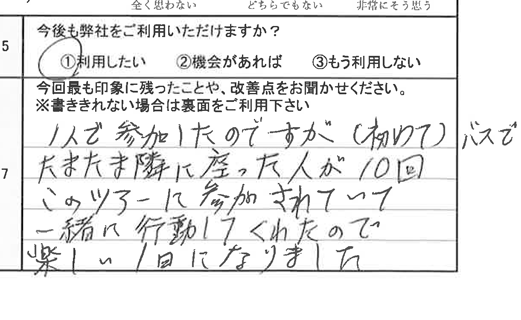 全く思わない　どちらでもない　非常にそう思う
5 今後も弊社をご利用いただけますか？
①利用したい　②機会があれば　③もう利用しない
今回最も印象に残ったことや、改善点をお聞かせください。
※書ききれない場合は裏面をご利用下さい
1人で参加したのですが（初めて）バスで
たまたま隣に座った人が10回
7 このツアーに参加されていて
一緒に行動してくれたので
楽しい1日になりました